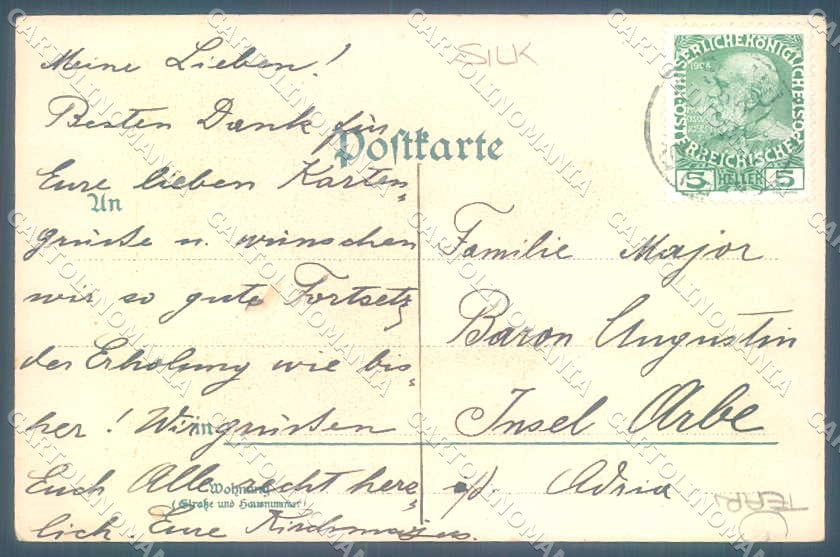 Meine Lieben!
Besten Dank für
Eure lieben Karten-
grüsse u. wünschen
wir so gute Fortsetz.
der Erholung wie bis-
her! Wir grüssen
Euch Alle recht herz-
lich. Eure
SILK
Postkarte
An
in
Wohnung
(Straße und Hausnummer)
KAISERLICHE KÖNIGLICHE ÖSTERREICHISCHE
5 HELLER 5
Familie Major
Baron Augustin
Insel Arbe
a/d. Adria
TEAR
CARTOLINOMANIA